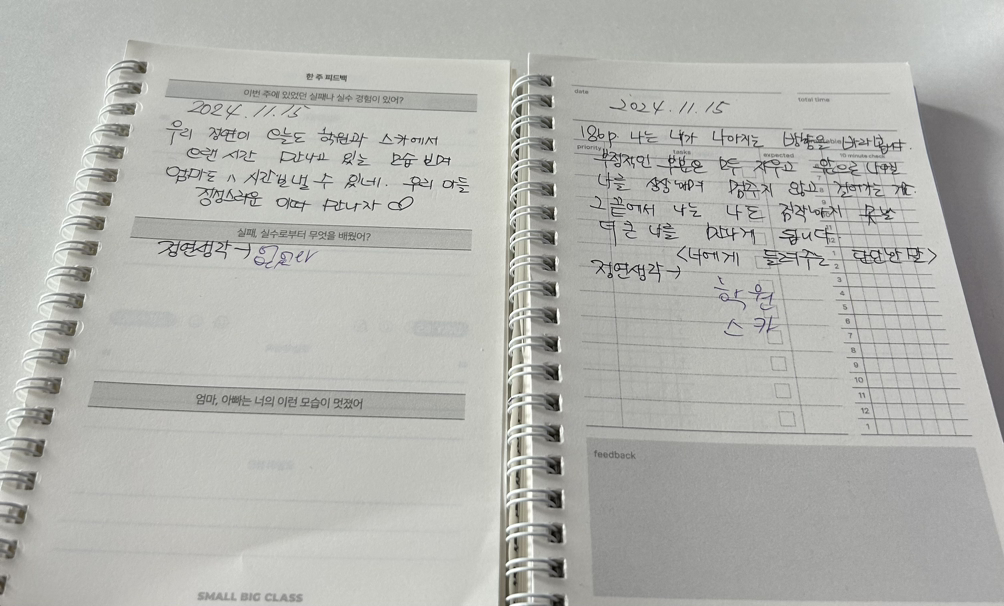 한 주 피드백
이번 주에 있었던 실패나 실수 경험이 있어?
2024.11.15
우리 정연이 오늘도 학원과 스카에서
오랜 시간 만나고 있는 모습 보며
엄마도 시간보낼 수 있네. 우리 아들
정성스러운 이따 만나자
실패, 실수로부터 무엇을 배웠어?
정연생각→
엄마, 아빠는 너의 이런 모습이 멋졌어
SMALL BIG CLASS
date
total time
2024.11.15
18op. 나는 내가 나아지는 방법을
priority
tasks
expected
10 minute check
부정적인 부분은 모두 지우고 앞으로 나아갈
나를 상상하며 멈추지 않고 걸어가는 것.
그 끝에서 나는 나도 짐작하지 못할
더 큰 나를 만나게 됩니다.
<너에게 들려주는 단단한 말>
정연생각→
학원
스카
12
1
2
3
4
5
6
7
8
9
10
11
12
1
feedback